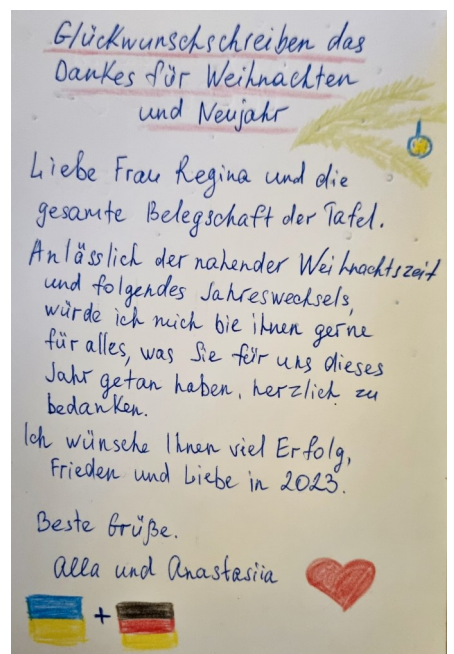 Glückwunschschreiben das
Dankes für Weihnachten
und Neujahr
Liebe Frau Regina und die
gesamte Belegschaft der Tafel.
Anlässlich der nahender Weihnachtszeit
und folgendes Jahreswechsels,
würde ich mich bie ihnen gerne
für alles, was Sie für uns dieses
Jahr getan haben, herzlich zu
bedanken.
Ich wünsche Ihnen viel Erfolg,
Frieden und Liebe in 2023.
Beste Grüße.
Alla und Anastasiia
+